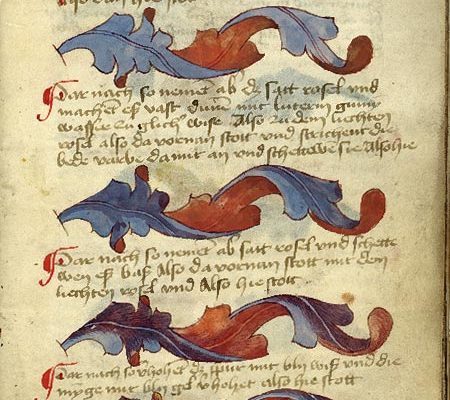 Dar nach so nemet ab dz satt rosel vnd
machet eß vast dunne mit luterm gumy
wasser zu glich wise Also zu dem liechten
rosel also da vornan stott vnd strichent die
bede varbe da mit an vnd schettewe sie Also hie
Dar nach so nemet ab satt rosel vnd schette
wen eß baß Also da vornan stott mit dem
liechten rosel vnd Also hie stott
Dar nach so vhohet dz mit blij wiß vnd die
mit blij gel vhohet also hie stott